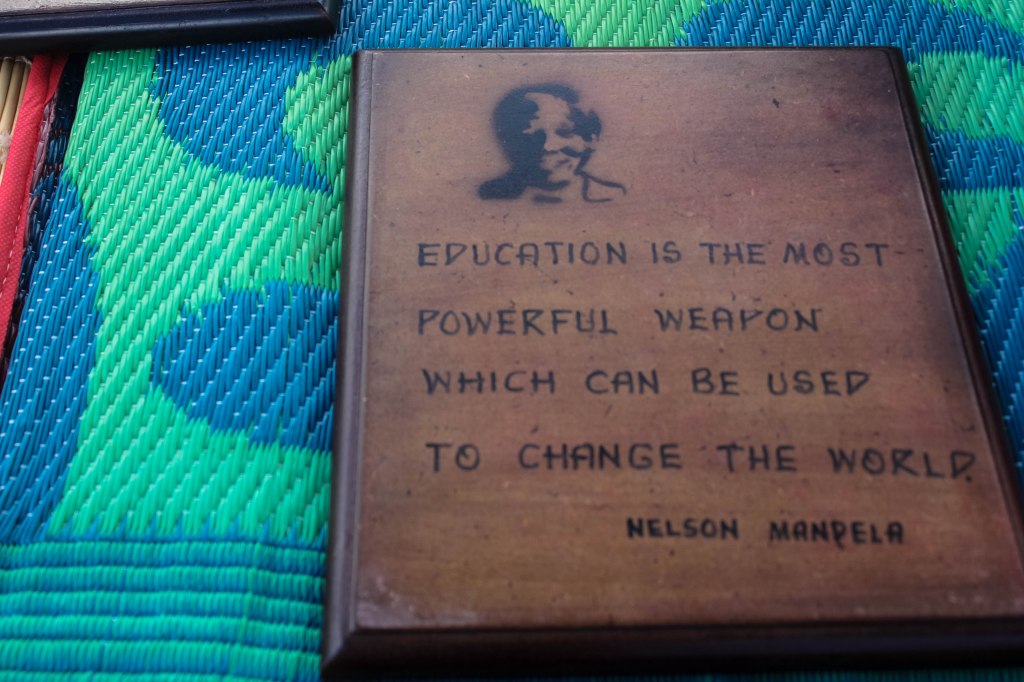 EDUCATION IS THE MOST
POWERFUL WEAPON
WHICH CAN BE USED
TO CHANGE THE WORLD.
NELSON MANDELA